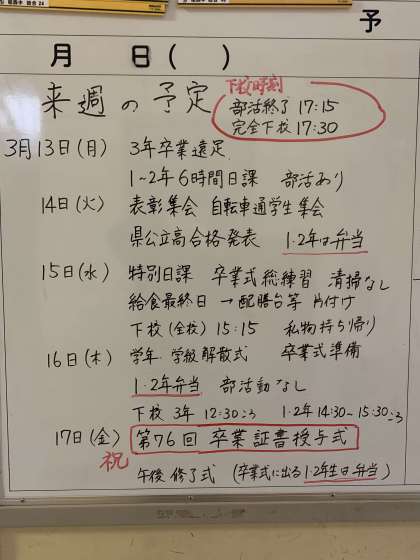 予
月 日( )
来週の予定
下校時刻
部活終了 17:15
完全下校 17:30
3月13日(月) 3年卒業遠足
1~2年6時間日課 部活あり
14日(火) 表彰集会 自転車通学生集会
県公立高合格発表 1.2年は弁当
15日(水) 特別日課 卒業式総練習 清掃なし
給食最終日 →配膳台等 片付け
下校(全校) 15:15 私物持ち帰り
16日(木) 学年.学級解散式 卒業式準備
1.2年弁当 部活動なし
下校 3年 12:30ころ 1.2年14:30~15:30ころ
17日(金) 第76回 卒業証書授与式
祝
午後 修了式 (卒業式に出る1.2年生は弁当)